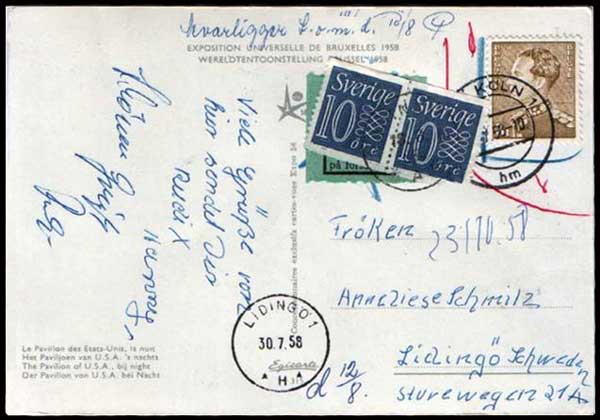 kvarligger t.o.m. d. 10/8
EXPOSITION UNIVERSELLE DE BRUXELLES 1958
WERELDTENTOONSTELLING BRUSSEL 1958
Sverige
10
öre
Sverige
10
öre
BELGIE
KÖLN
hm
på
Viele Grüße von
hier sendet Dir
Rudi
Fröken
23/10.58
Anneliese Schmitz
Lidingö Schweden
sturevägen 21A
LIDINGÖ 1
30.7.58
H
d 12/8.
Le Pavillon des Etats-Unis, la nuit
Het Paviljoen van U.S.A. 's nachts
The Pavilion of U.S.A., bij night
Der Pavillon von U.S.A. bei Nacht